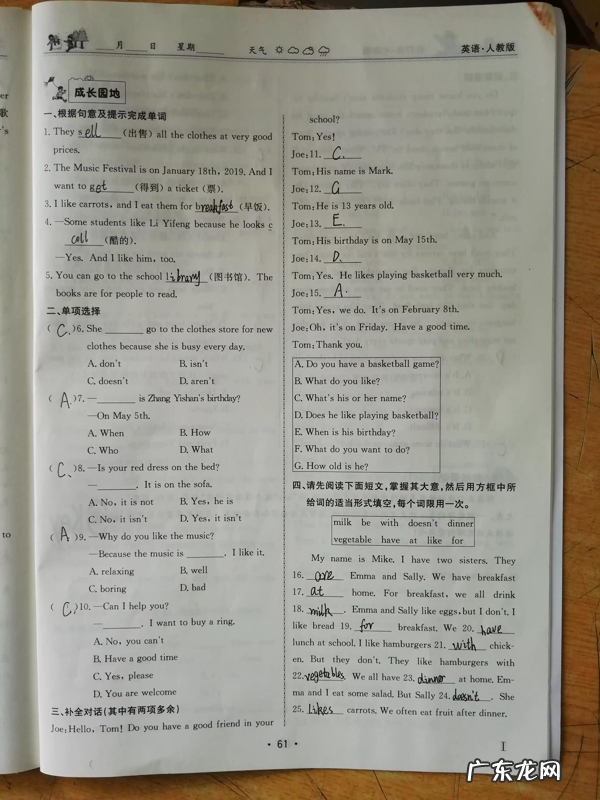 月 日 星期 天气
英语·人教版
成长园地
一、根据句意及提示完成单词
1. They sell (出售) all the clothes at very good
prices.
2. The Music Festival is on January 18th, 2019. And I
want to get (得到) a ticket (票).
3. I like carrots, and I eat them for breakfast (早饭).
4. —Some students like Li Yifeng because he looks c
coll (酷的).
—Yes. And I like him, too.
5. You can go to the school library (图书馆). The
books are for people to read.
二、单项选择
( C. )6. She ________ go to the clothes store for new
clothes because she is busy every day.
A. don't B. isn't
C. doesn't D. aren't
( A. )7. —________ is Zhang Yishan's birthday?
—On May 5th.
A. When B. How
C. Who D. What
( C. )8. —Is your red dress on the bed?
—________. It is on the sofa.
A. No, it is not B. Yes, he is
C. No, it isn't D. Yes, it isn't
( A )9. —Why do you like the music?
—Because the music is ________. I like it.
A. relaxing B. well
C. boring D. bad
( C. )10. —Can I help you?
—________. I want to buy a ring.
A. No, you can't
B. Have a good time
C. Yes, please
D. You are welcome
三、补全对话(其中有两项多余)
Joe: Hello, Tom! Do you have a good friend in your
school?
Tom: Yes!
Joe: 11. C.
Tom: His name is Mark.
Joe: 12. G
Tom: He is 13 years old.
Joe: 13. E.
Tom: His birthday is on May 15th.
Joe: 14. D.
Tom: Yes. He likes playing basketball very much.
Joe: 15. A.
Tom: Yes, we do. It's on February 8th.
Joe: Oh, it's on Friday. Have a good time.
Tom: Thank you.
A. Do you have a basketball game?
B. What do you like?
C. What's his or her name?
D. Does he like playing basketball?
E. When is his birthday?
F. What do you want to do?
G. How old is he?
四、请先阅读下面短文,掌握其大意,然后用方框中所
给词的适当形式填空,每个词限用一次。
milk be with doesn't dinner
vegetable have at like for
My name is Mike. I have two sisters. They
16. are Emma and Sally. We have breakfast
17. at home. For breakfast, we all drink
18. milk. Emma and Sally like eggs, but I don't. I
like bread 19. for breakfast. We 20. have
lunch at school. I like hamburgers 21. with chick-
en. But they don't. They like hamburgers with
22. vegetables. We all have 23. dinner at home. Em-
ma and I eat some salad. But Sally 24. doesn't. She
25. likes carrots. We often eat fruit after dinner.
·61·
I
er
歌
r's
to
广东龙网